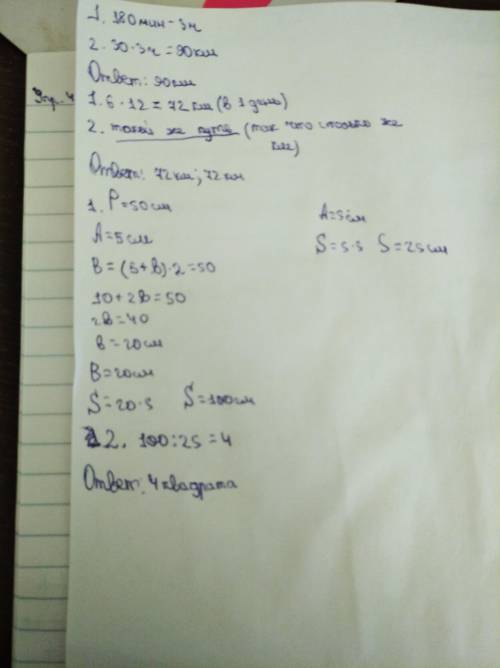 1. 180мин - 3ч
2. 30·3ч = 90км
Ответ: 90км
Упр. 4
1. 6·12 = 72 км (в 1 день)
2. такой же путь (так что столько же
км)
Ответ: 72км; 72км
1. P=50см
A=5см
B = (5+b)·2=50
10+2b=50
2b=40
b=20см
B=20см
S=20·5 S=100см
A=5см
S=5·5 S=25см
2. 100:25=4
Ответ: 4 квадрата